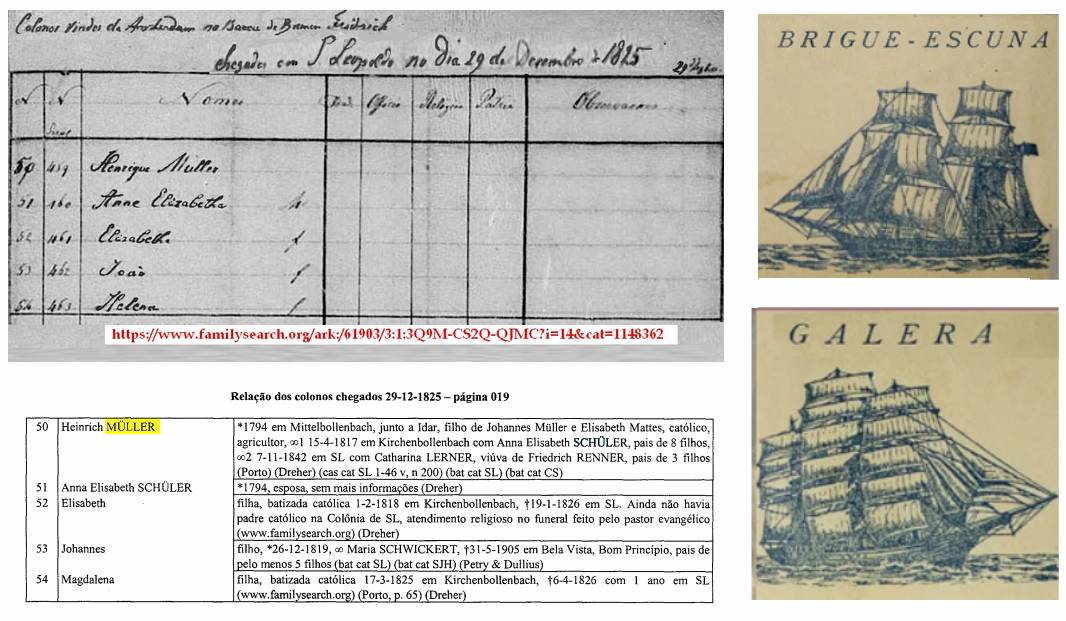 Colonos vindos de Amsterdam na Barca de Bremen Friedrich
chegados em S. Leopoldo no Dia 29 de Dezembro de 1825
N N Nomes Officio Religião Patria Observacoens
Geral
50 459 Henrique Müller
51 460 Anne Elizabetha
52 461 Elizabeth f
53 462 João f
54 463 Helena f
https://www.familysearch.org/ark:/61903/3:1:3Q9M-CS2Q-QJMC?i=14&cat=1148362
BRIGUE-ESCUNA
GALERA
Relação dos colonos chegados 29-12-1825 – página 019
50 Heinrich MÜLLER *1794 em Mittelbollenbach, junto a Idar, filho de Johannes Müller e Elisabeth Mattes, católico,
agricultor, ∞1 15-4-1817 em Kirchenbollenbach com Anna Elisabeth SCHÜLER, pais de 8 filhos,
∞2 7-11-1842 em SL com Catharina LERNER, viúva de Friedrich RENNER, pais de 3 filhos
(Porto) (Dreher) (cas cat SL 1-46 v, n 200) (bat cat SL) (bat cat CS)
51 Anna Elisabeth SCHÜLER *1794, esposa, sem mais informações (Dreher)
52 Elisabeth filha, batizada católica 1-2-1818 em Kirchenbollenbach, †19-1-1826 em SL. Ainda não havia
padre católico na Colônia de SL, atendimento religioso no funeral feito pelo pastor evangélico
(www.familysearch.org) (Dreher)
53 Johannes filho, *26-12-1819, ∞ Maria SCHWICKERT, †31-5-1905 em Bela Vista, Bom Princípio, pais de
pelo menos 5 filhos (bat cat SL) (bat cat SJH) (Petry & Dullius)
54 Magdalena filha, batizada católica 17-3-1825 em Kirchenbollenbach, †6-4-1826 com 1 ano em SL
(www.familysearch.org) (Porto, p. 65) (Dreher)